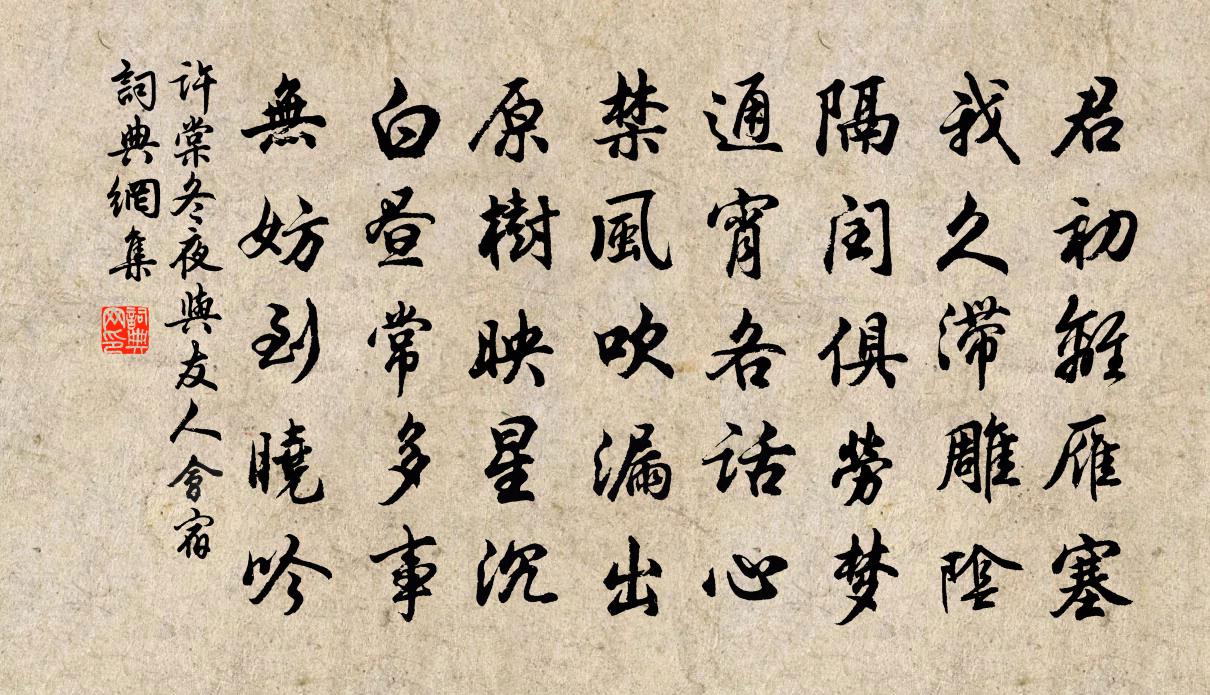 君初離雁塞
我久滯雕陰
隔閏俱勞梦
通宵各話心
禁風吹漏出
原樹映星沉
白昼常多事
無妨到曉吟
許棠冬夜與友人會宿
詞典網集
詞典网印